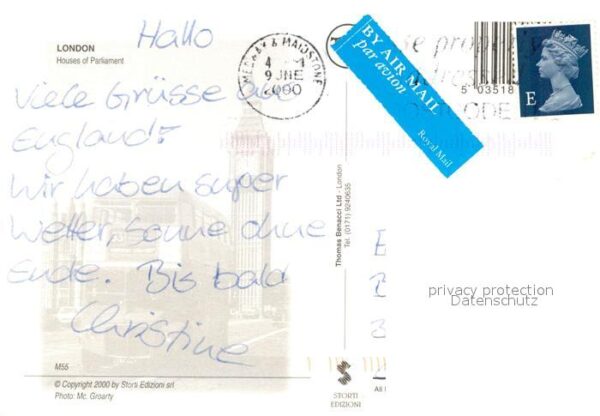 LONDON
Houses of Parliament
Hallo
Viele Grüsse aus
England!
Wir haben super
Wetter, Sonne ohne
Ende. Bis bald
Christine
M55
© Copyright 2000 by Storti Edizioni srl
Photo: Mc. Groarty
MEDWAY & MAIDSTONE
9 JNE
2000
BY AIR MAIL
par avion
Royal Mail
E
5 03518
Thomas Benacci Ltd - London
Tel. (0171) 9240635
STORTI
EDIZIONI
privacy protection
Datenschutz